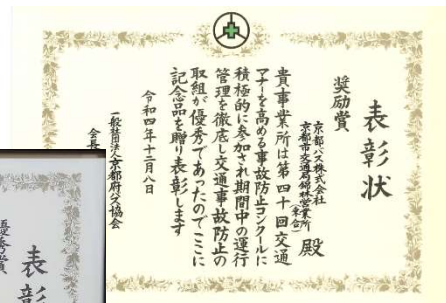 表彰状
奨励賞
京都バス株式会社
京都市交通局錦林営業所
(委合)
殿
貴事業所は第四十回交通
マナーを高める事故防止コンクールに
積極的に参加され期間中の運行
管理を徹底し交通事故防止の
取組が優秀であったのでここに
記念品を贈り表彰します
令和四年十二月八日
一般社団法人京都府バス協会
会長
表彰
優秀賞